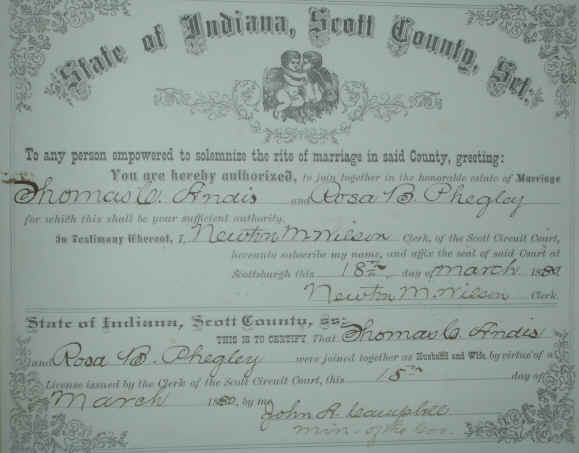 State of Indiana, Scott County, Sct.
To any person empowered to solemnize the rite of marriage in said County, greeting:
You are hereby authorized, to join together in the honorable estate of Marriage
Thomas C. Andis and Rosa B. Phegley
for which this shall be your sufficient authority.
In Testimony Whereof, I, Newton M. Wilson Clerk, of the Scott Circuit Court,
hereunto subscribe my name, and affix the seal of said Court at
Scottsburgh this 18th day of March
Newton M. Wilson Clerk.
State of Indiana, Scott County, ss:
THIS IS TO CERTIFY That Thomas C. Andis
and Rosa B. Phegley were joined together as Husband and Wife, by virtue of a
License issued by the Clerk of the Scott Circuit Court, this 18th day of
March 1880, by me
John A. Campbell
Min. of the Gos.